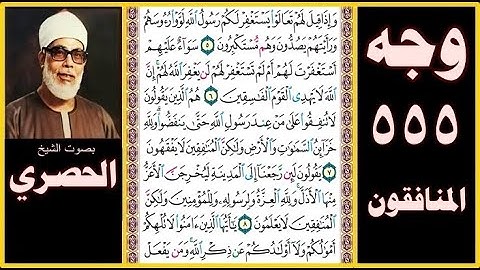 وجه
٥٥٥
المنافقون
وَإِذَا قِيلَ لَهُمْ تَعَالَوْا۟ يَسْتَغْفِرْ لَكُمْ رَسُولُ ٱللَّهِ لَوَّوْا۟ رُءُوسَهُمْ
وَرَأَيْتَهُمْ يَصُدُّونَ وَهُم مُّسْتَكْبِرُونَ ٥ سَوَآءٌ عَلَيْهِمْ
أَسْتَغْفَرْتَ لَهُمْ أَمْ لَمْ تَسْتَغْفِرْ لَهُمْ لَن يَغْفِرَ ٱللَّهُ لَهُمْ إِنَّ
ٱللَّهَ لَا يَهْدِى ٱلْقَوْمَ ٱلْفَٰسِقِينَ ٦ هُمُ ٱلَّذِينَ يَقُولُونَ
لَا تُنفِقُوا۟ عَلَىٰ مَنْ عِندَ رَسُولِ ٱللَّهِ حَتَّىٰ يَنفَضُّوا۟ وَلِلَّهِ
خَزَآئِنُ ٱلسَّمَٰوَٰتِ وَٱلْأَرْضِ وَلَٰكِنَّ ٱلْمُنَٰفِقِينَ لَا يَفْقَهُونَ
٧ يَقُولُونَ لَئِن رَّجَعْنَآ إِلَى ٱلْمَدِينَةِ لَيُخْرِجَنَّ ٱلْأَعَزُّ
مِنْهَا ٱلْأَذَلَّ وَلِلَّهِ ٱلْعِزَّةُ وَلِرَسُولِهِۦ وَلِلْمُؤْمِنِينَ وَلَٰكِنَّ
ٱلْمُنَٰفِقِينَ لَا يَعْلَمُونَ ٨ يَٰٓأَيُّهَا ٱلَّذِينَ ءَامَنُوا۟ لَا تُلْهِكُمْ
أَمْوَٰلُكُمْ وَلَآ أَوْلَٰدُكُمْ عَن ذِكْرِ ٱللَّهِ وَمَن يَفْعَلْ
بصوت الشيخ
الحصري